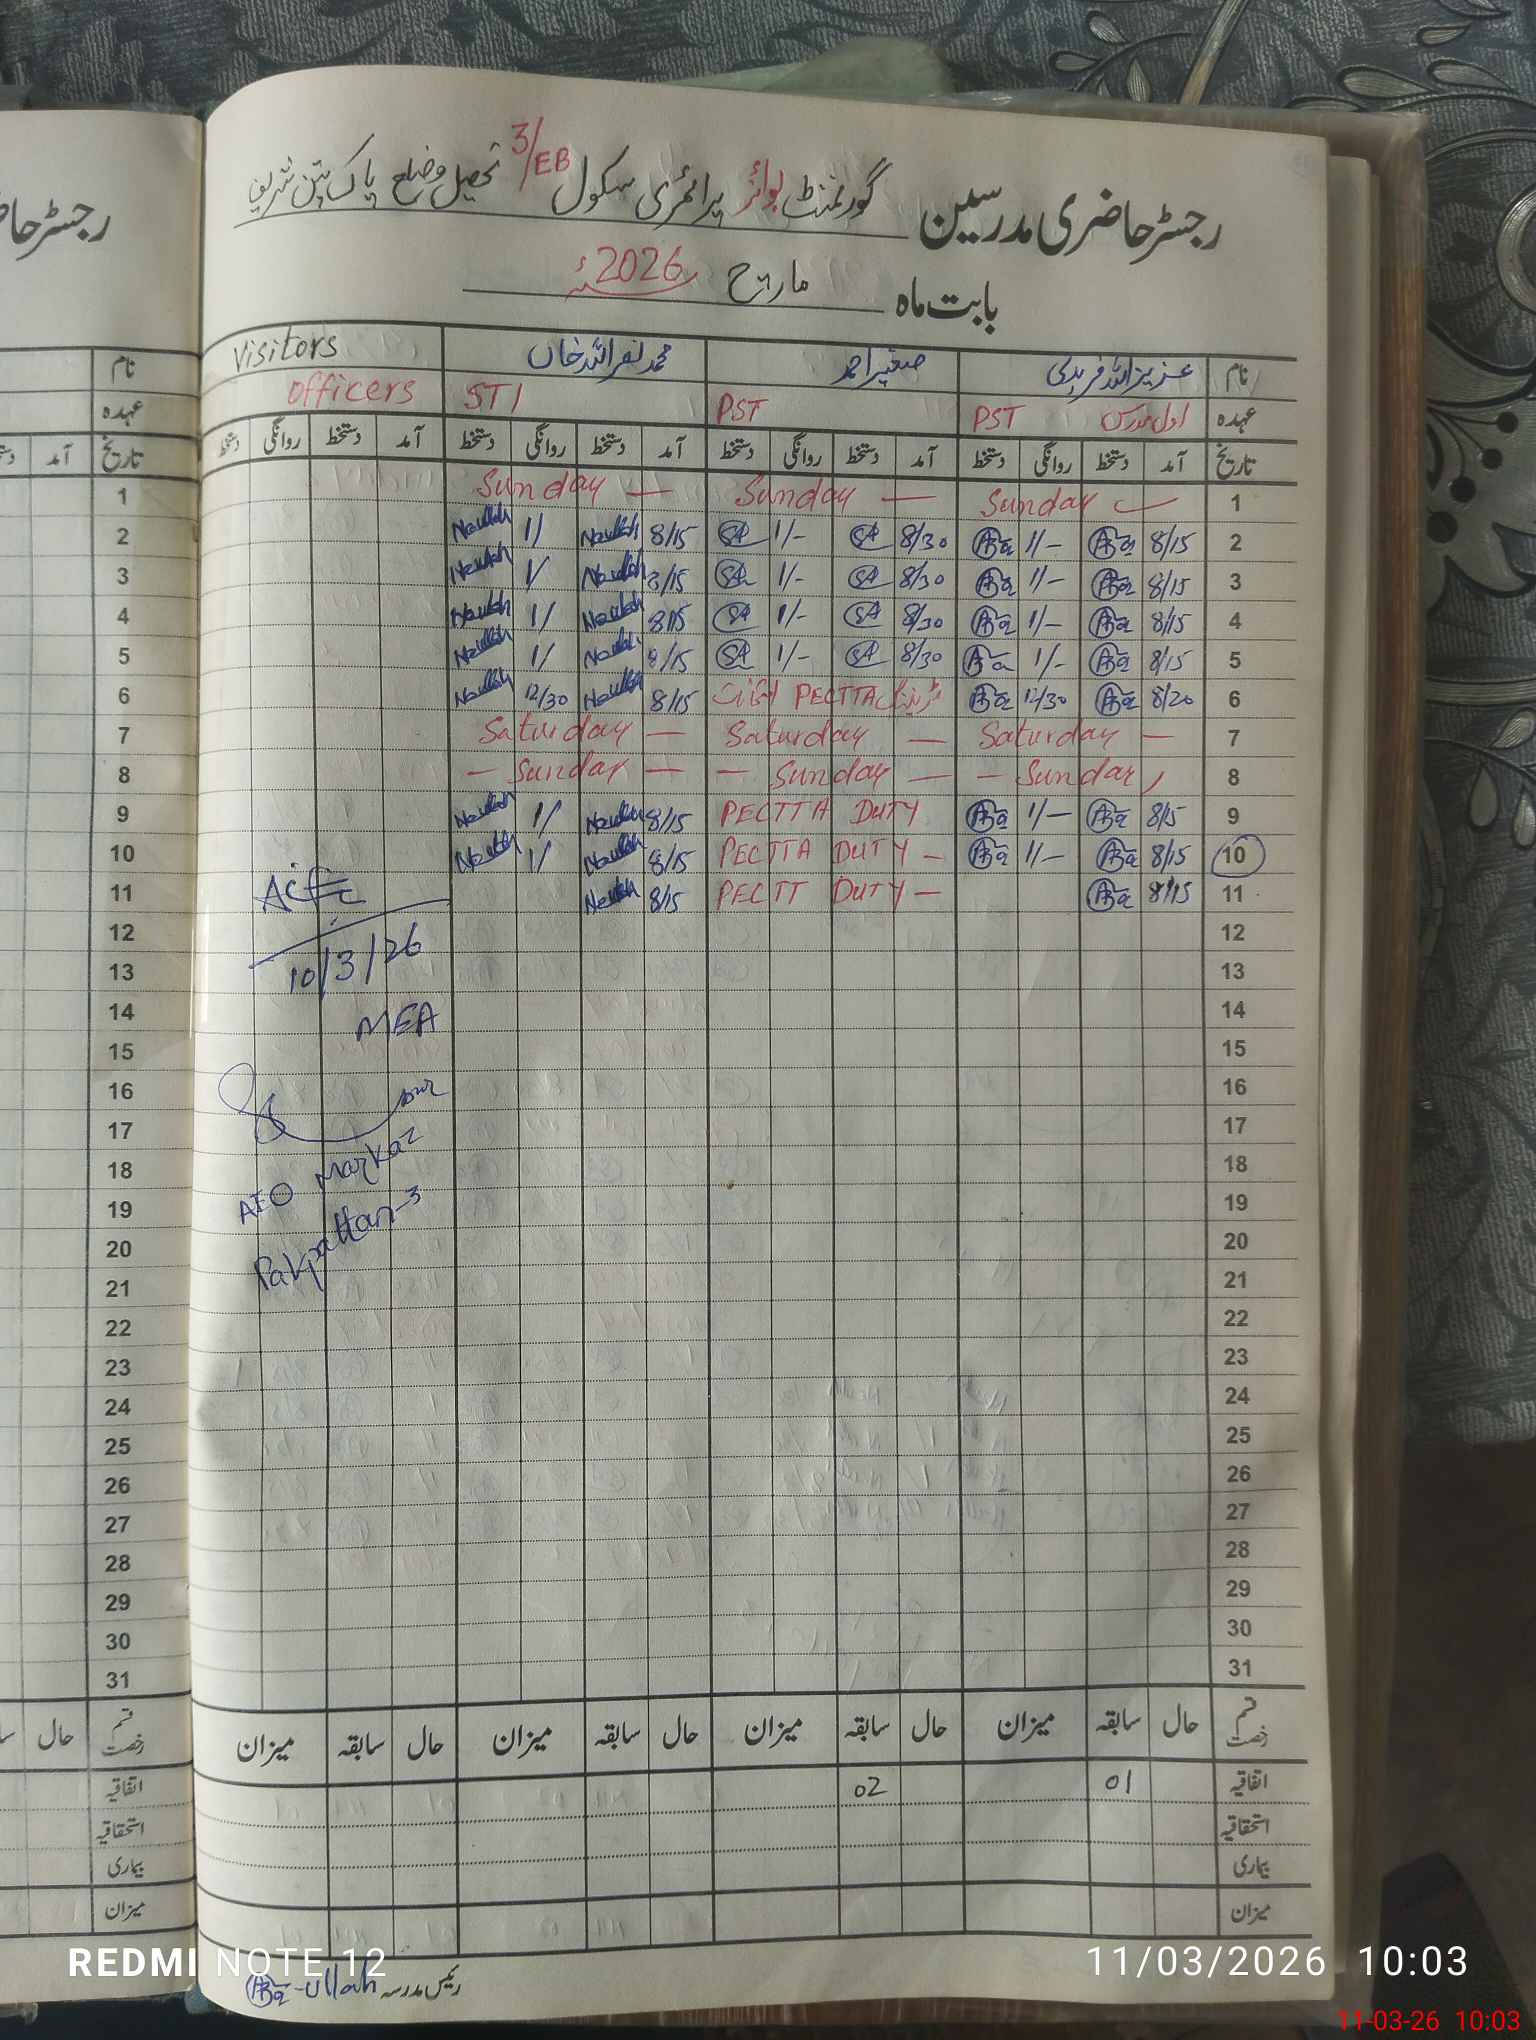 رجسٹر حاضری مدرسین گورنمنٹ بوائز پرائمری سکول 3/EB تحصیل وضلع پاک پتن شریف
بابت ماہ مارچ 2026ء
نام عزیز اللہ فریدی صغیر احمد محمد نصر اللہ خان Visitors
عہدہ اول مدرس PST PST STI officers
تاریخ آمد دستخط روانگی دستخط آمد دستخط روانگی دستخط آمد دستخط روانگی دستخط آمد دستخط روانگی دستخط
1 Sunday — Sunday — Sunday — 1
2 1/ 8/15 1/- 8/30 1/- 8/15 2
3 1/ 8/15 1/- 8/30 1/- 8/15 3
4 1/ 8/15 1/- 8/30 1/- 8/15 4
5 1/ 8/15 1/- 8/30 1/- 8/15 5
6 12/30 8/15 PECTTA ٹریننگ 12/30 8/20 6
7 Saturday — Saturday — Saturday — 7
8 — Sunday — — Sunday — — Sunday 8
9 1/ 8/15 PECTTA DUTY 1/- 8/15 9
10 1/ 8/15 PECTTA DUTY — 1/- 8/15 10
11 8/15 PECTT DUTY — 8/15 11
12 12
10/3/26
13 13
14 14
MEA
15 15
16 16
17 17
18 18
AEO Markaz
19 19
20 20
Pakpattan-3
21 21
22 22
23 23
24 24
25 25
26 26
27 27
28 28
29 29
30 30
31 31
قسم رخصت حال سابقہ میزان حال سابقہ میزان حال سابقہ میزان حال سابقہ میزان
اتفاقیہ 01 02
استحقاقیہ
بیماری
میزان
رئیس مدرسہ
رجسٹر حا
نام
عہدہ
تاریخ آمد
قسم رخصت حال
اتفاقیہ
استحقاقیہ
بیماری
میزان
REDMI NOTE 12
11/03/2026 10:03
11-03-26 10:03